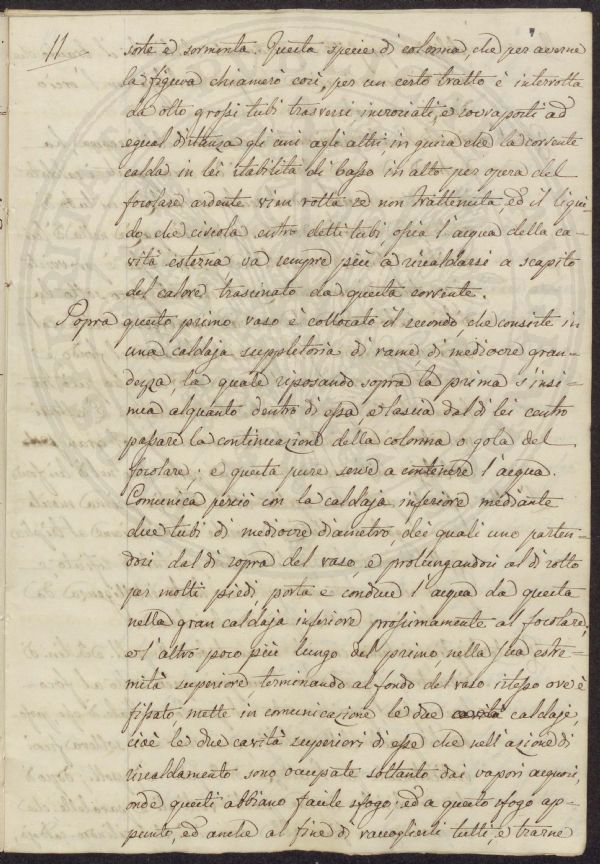 11
sorte e sormonta. Questa specie di colonna, che per averne
la figura chiamerò così, per un certo tratto è interrotta
da otto grossi tubi trasversi incrociati, e sovrapposti ad
egual distanza gli uni agli altri, in guisa che la corrente
calda in lei stabilita di basso in alto per opera del
focolare ardente vien rotta se non trattenuta, ed il liqui-
do, che circola entro detti tubi, ossia l'acqua della ca-
vità esterna va sempre più a riscaldarsi a scapito
del calore trascinato da questa corrente.
Sopra questo primo vaso è collocato il secondo, che consiste in
una caldaja suppletoria di rame, di mediocre gran-
dezza, la quale riposando sopra la prima s'insi-
nua alquanto dentro di essa, e lascia dal di lei centro
passare la continuazione della colonna o gola del
focolare; e questa pure serve a contenere l'acqua.
Comunica perciò con la caldaja inferiore mediante
due tubi di mediocre diametro, dei quali uno parten-
dosi dal di sopra del vaso, e prolungandosi al di sotto
per molti piedi porta e conduce l'acqua da questa
nella gran caldaja inferiore prossimamente al focolare,
e l'altro poco più lungo del primo, nella sua estre-
mità superiore terminando al fondo del vaso istesso ove è
fissato, mette in comunicazione le due cavità caldaje,
cioè le due cavità superiori di esse che nell'azione di
riscaldamento sono occupate soltanto dai vapori acquosi,
onde questi abbiano facile sfogo; ed a questo sfogo ap-
punto, ed anche al fine di raccoglierli tutti, e trarne